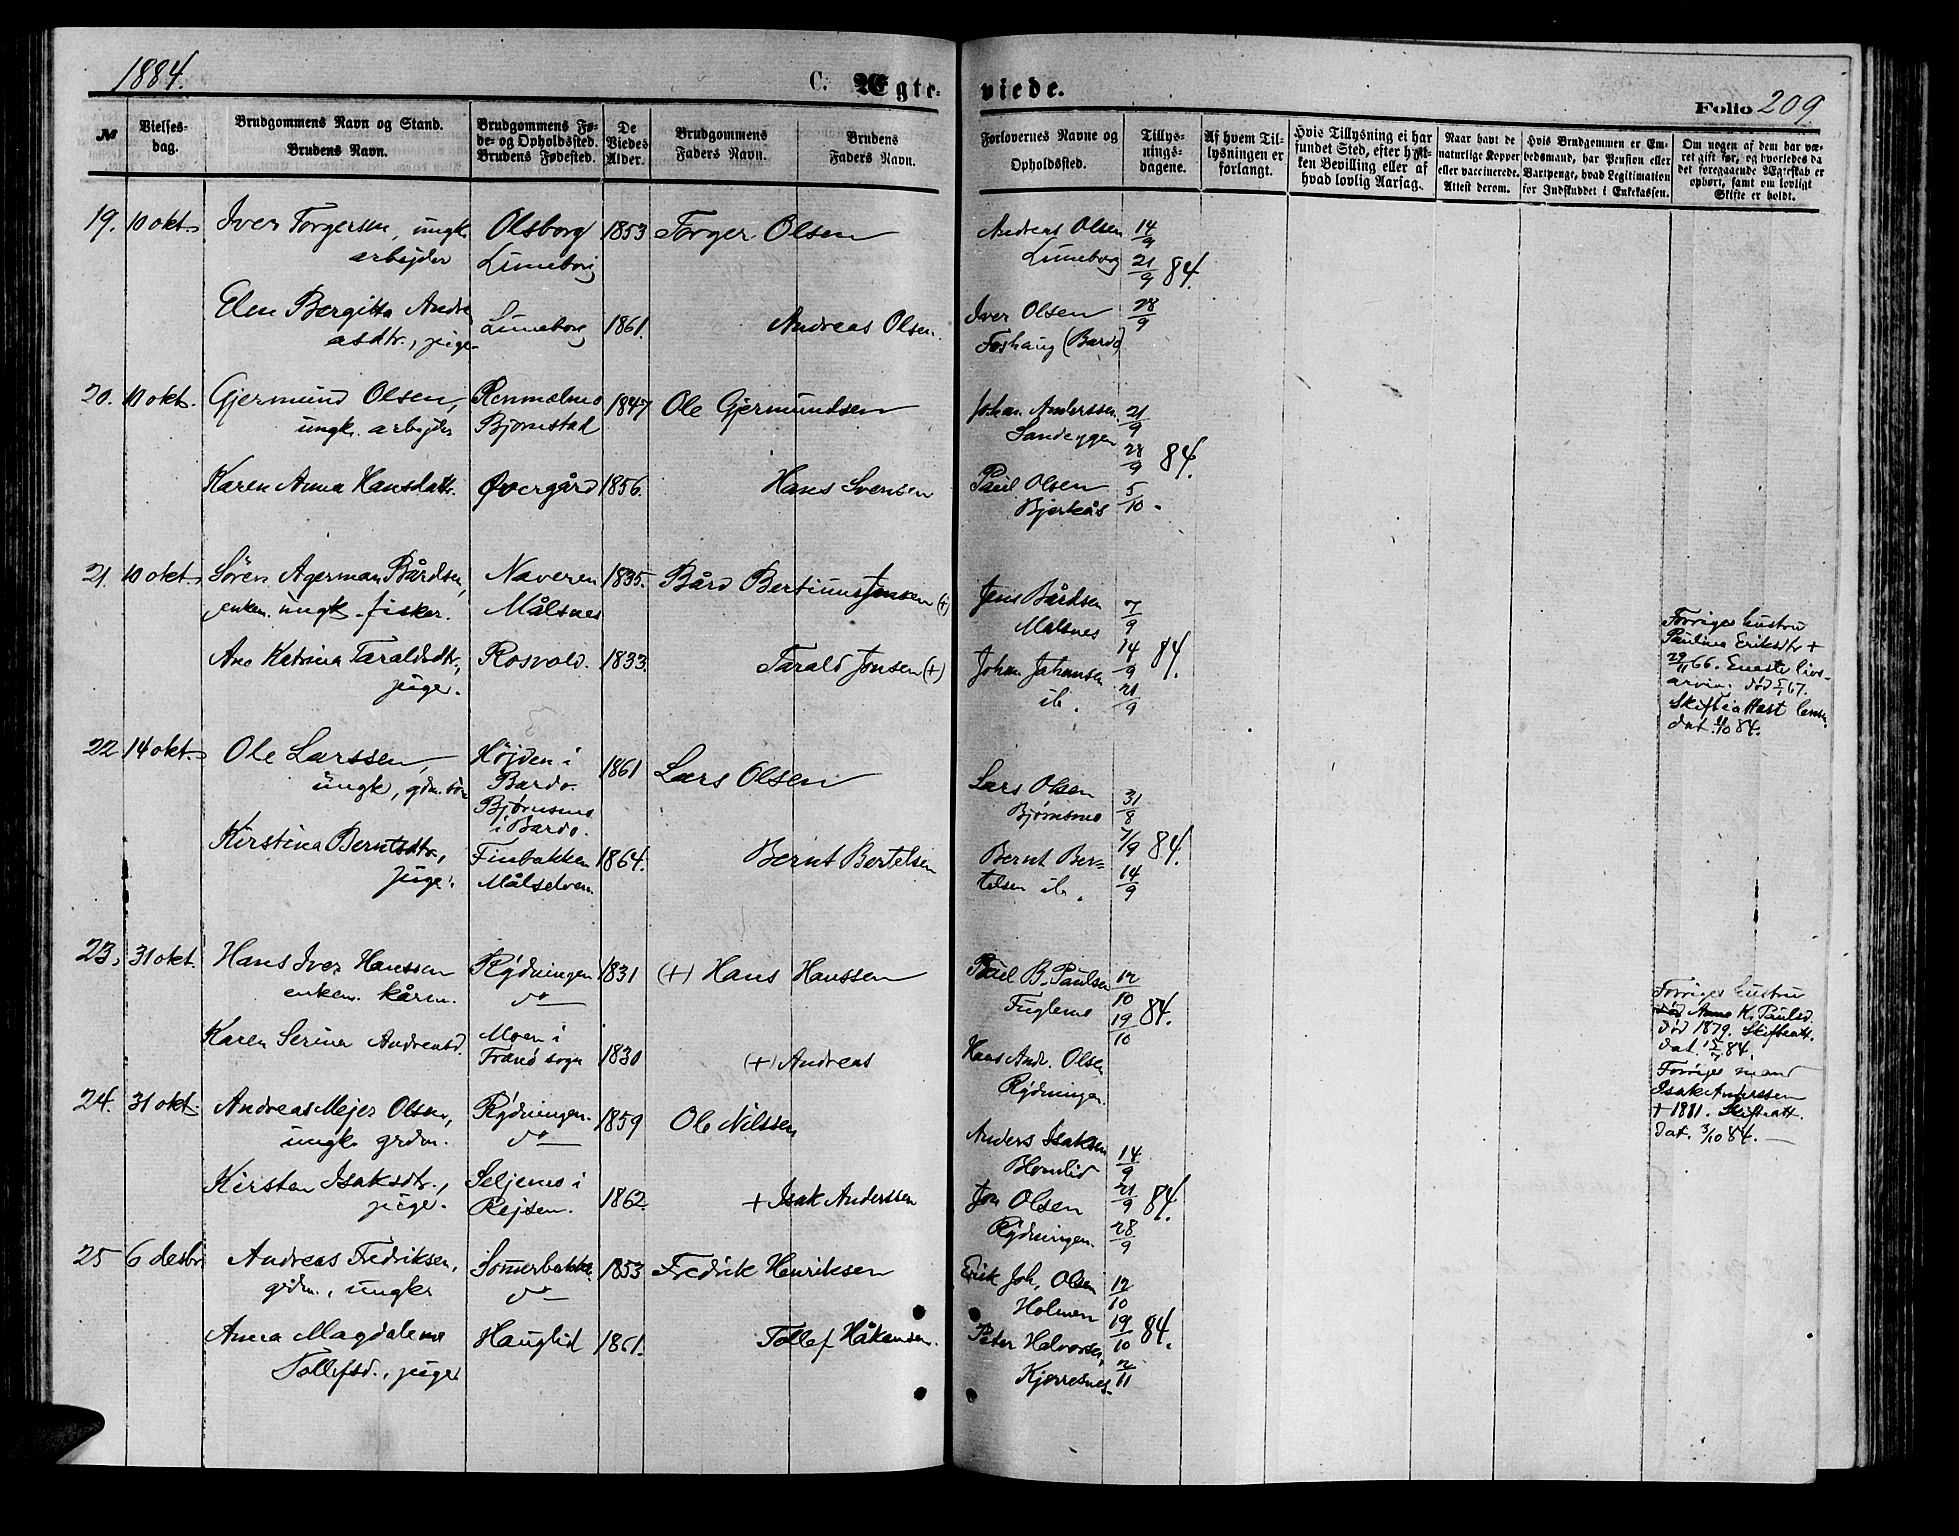 1884.
C. Ægte-
viede.
Folio 209.
№
Vielses-
dag.
Brudgommens Navn og Stand.
Brudens Navn.
Brudgommens Fø-
de- og Opholdssted.
Brudens Fødested.
De
Viedes
Alder.
Brudgommens
Faders Navn.
Brudens
Faders Navn.
Forlovernes Navne og
Opholdssted.
Tillys-
nings-
dagene.
Af hvem Til-
lysningen er
forlangt.
Hvis Tillysning ei har
fundet Sted, efter hvil-
ken Bevilling eller af
hvad lovlig Aarsag.
Naar havt de
naturlige Kopper
eller vaccinerede.
Attest derom.
Hvis Brudgommen er Em-
bedsmand, har Pension eller
Vartpenge, hvad Legitimation
for Indskuddet i Enkekassen.
Om nogen af dem har væ-
ret gift før, og hvorledes da
det foregaaende Ægteskab er
ophørt, samt om lovligt
Skifte er holdt.
19. 10 okt. Iver Torgersen, ungk. Olsborg 1853 Torger Olsen Andreas Olsen 14/9
arbejder Limeborg Limeborg 21/9 84.
Elen Bergitta Andre Limeborg 1861. Andreas Olsen. Iver Olsen 28/9
asdtr., pige. Foshaug (Bardo)
20. 10 okt. Gjermund Olsen, Renmælmo 1847 Ole Gjermundsen Johan Anderssen 21/9
ungk. arbejder Bjørnstad Sandeggen 28/9 84.
Karen Anna Hansdatr. Øvergård 1856. Hans Svensen Paul Olsen 5/10.
Bjerkås
21. 10 okt. Sören Agerman Bårdsen, Naveren 1835. Bård Bertinus Jensen (+) Jens Bårdsen 7/9
enkem. ungk. fisker. Målsnes Målsnes 14/9 84.
Ane Katrina Taraldsdtr., Rosvold. 1833. Tarald Jonsen (+) Johan Johansen 21/9
pige. ib.
Forrige hustru
Paulina Eriksdtr +
29/11 66. Eneste livs-
arving død 5/1 67.
Skifteattest
dat. 84.
22 14 okt. Ole Larssen, Højden i 1861 Lars Olsen Lars Olsen 31/8
ungk, gdm.søn Bardo. Bjørnsmo 7/9 84.
Bjørnsmo
i Bardo.
Kirstina Berntsdtr., Finbakken 1864. Bernt Bertelsen Bernt Ber- 14/9
pige. Målselven. telsen ib.
23. 31 okt. Hans Iver Hanssen Rydningen 1831 (+) Hans Hanssen Paul B. Paulsen 12/10
enkem. kårm. do Fuglemo 19/10 84.
Karen Serina Andreasd. Moen i 1830 (+) Andreas Hans Andr. Olsen
Tranø sogn Rydningen.
Forrige hustru
Anna K. Paulsd.
død 1879. Skifteatt.
dat. 84.
Forrige mand
Isak Anderssen
+ 1881. Skifteatt.
dat. 3/10 84.
24. 31 okt. Andreas Mejer Olsen, Rydningen. 1859 Ole Nilssen Anders Isaksen 14/9
ungk. grdm. do
Kirsten Isaksdtr., Seljemo i 1862. + Isak Anderssen Jon Olsen 21/9 84.
pige. Rejsen. Rydningen. 28/9
25 6 desbr. Andreas Fredriksen, Sommerbakke. 1853 Fredrik Henriksen Erik Joh. Olsen 12/10
grdm., ungk. do Holmen 19/10 84.
Anna Magdalena Hauglid 1861. Tollef Håkensen. Peter Halvorsen, 2/11
Tollefsd., pige Kjerresnes.